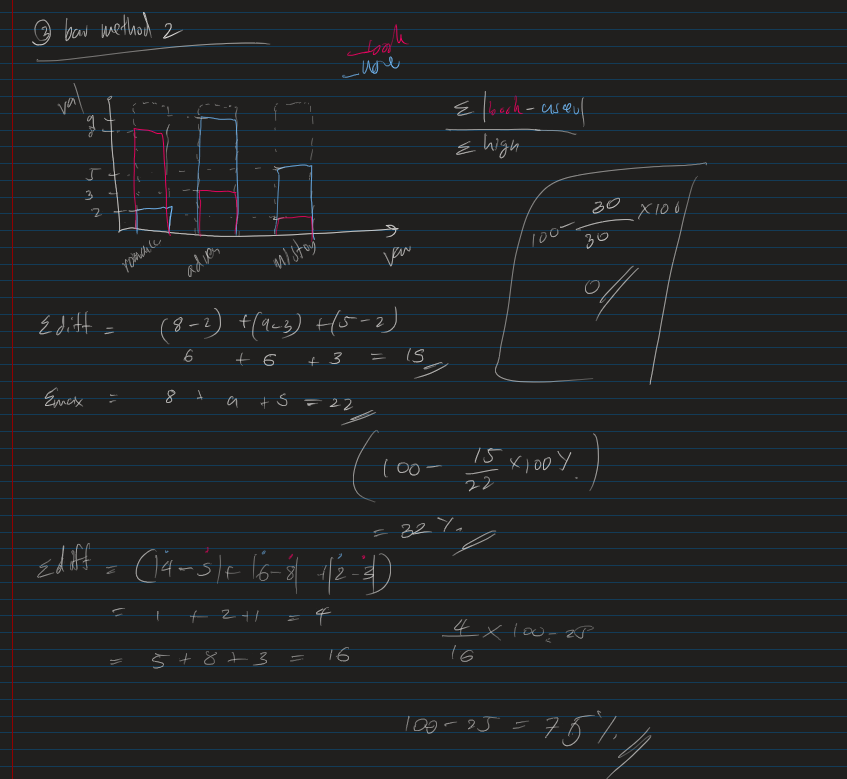 ③ bar method 2
book
user
val
9
8
5
3
2
romance
adven
mistory
Σ |book - user|
Σ high
100 - 30/30 × 100
0
Σ diff = (8-2) + (9-3) + (5-2)
6 + 6 + 3 = 15
Σmax = 8 + 9 + 5 = 22
(100 - 15/22 × 100%.)
= 32%.
Σ diff = (|4-5| + |6-8| + |2-3|)
= 1 + 2 + 1 = 4
= 5 + 8 + 3 = 16
4/16 × 100 = 25
100 - 25 = 75%